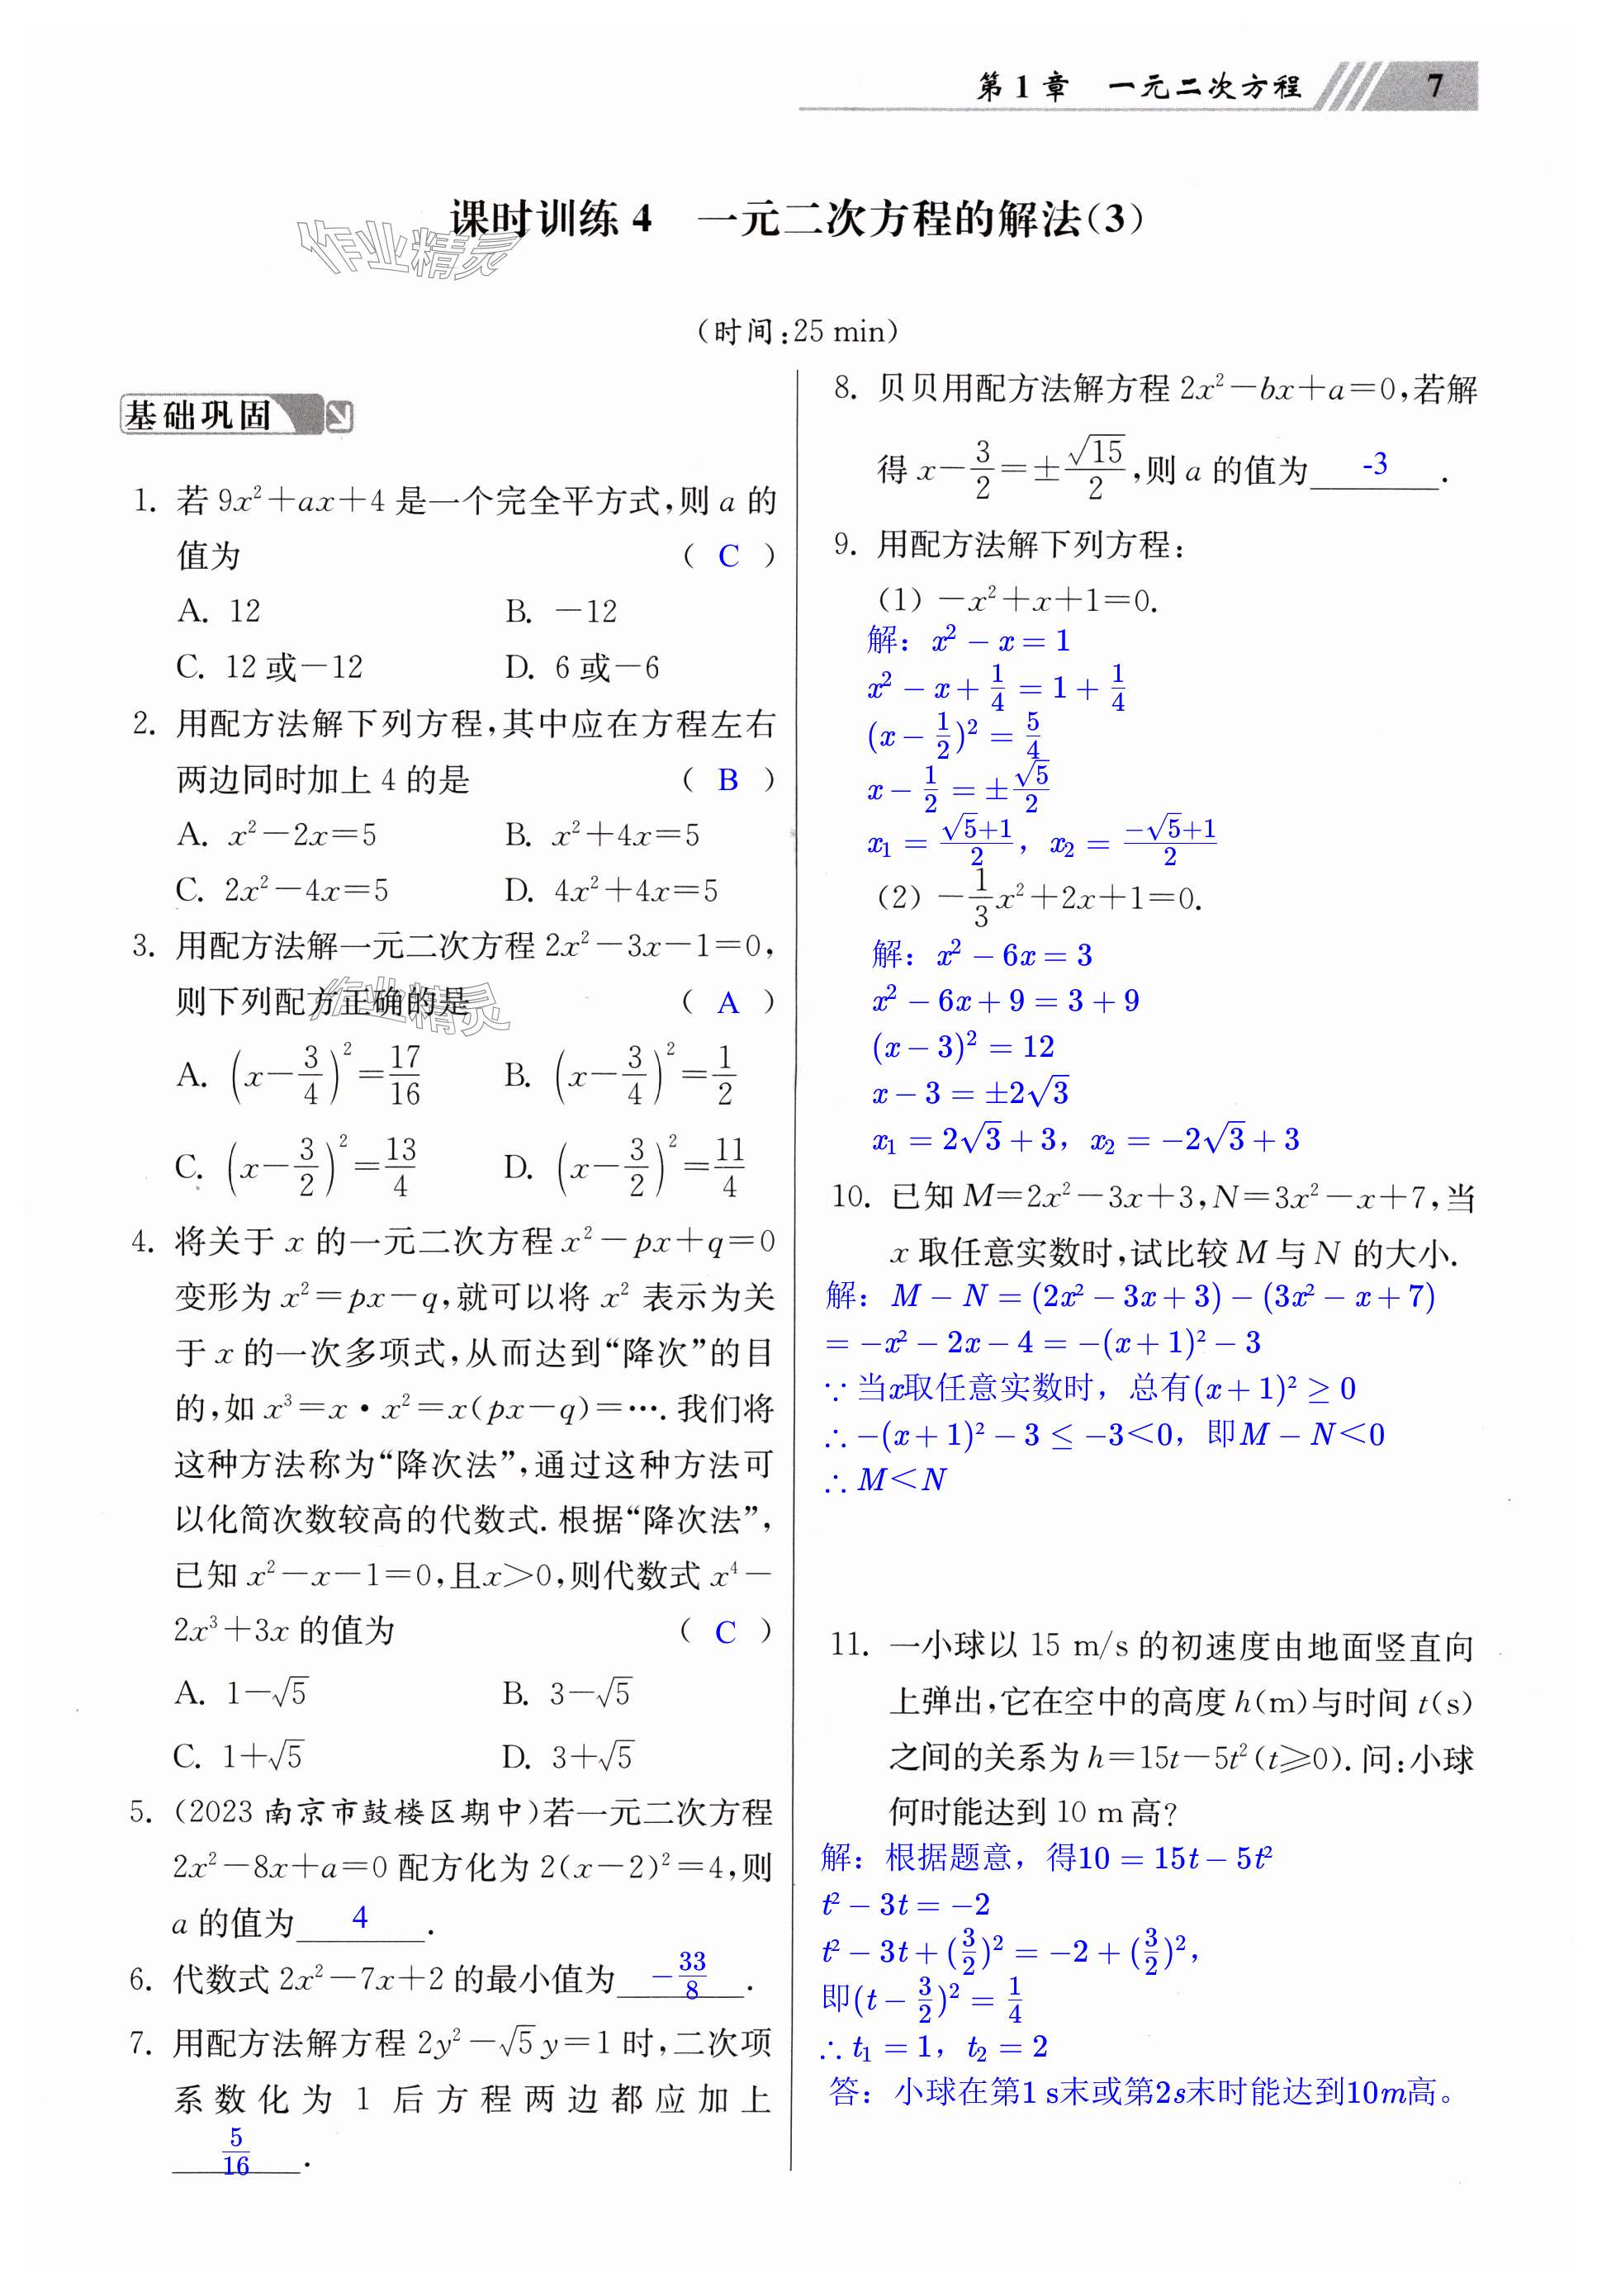 第 1 章　一元二次方程　7
课时训练 4　一元二次方程的解法(3)
作业精灵
(时间:25 min)
基础巩固
1. 若 9x²+ax+4 是一个完全平方式,则 a 的
值为 ( C )
A. 12　B. −12
C. 12 或−12　D. 6 或−6
2. 用配方法解下列方程,其中应在方程左右
两边同时加上 4 的是 ( B )
A. x²−2x=5　B. x²+4x=5
C. 2x²−4x=5　D. 4x²+4x=5
3. 用配方法解一元二次方程 2x²−3x−1=0,
则下列配方正确的是 ( A )
作业精灵
A. (x−3/4)²=17/16　B. (x−3/4)²=1/2
C. (x−3/2)²=13/4　D. (x−3/2)²=11/4
4. 将关于 x 的一元二次方程 x²−px+q=0
变形为 x²=px−q,就可以将 x² 表示为关
于 x 的一次多项式,从而达到“降次”的目
的,如 x³=x·x²=x(px−q)=…. 我们将
这种方法称为“降次法”,通过这种方法可
以化简次数较高的代数式. 根据“降次法”,
已知 x²−x−1=0,且x>0,则代数式 x⁴−
2x³+3x 的值为 ( C )
A. 1−√5　B. 3−√5
C. 1+√5　D. 3+√5
5. (2023 南京市鼓楼区期中)若一元二次方程
2x²−8x+a=0 配方化为 2(x−2)²=4,则
a 的值为 4 .
6. 代数式 2x²−7x+2 的最小值为 −33/8 .
7. 用配方法解方程 2y²−√5 y=1 时,二次项
系数化为 1 后方程两边都应加上
5/16 .
8. 贝贝用配方法解方程 2x²−bx+a=0,若解
得 x−3/2=±√15/2,则 a 的值为 -3 .
9. 用配方法解下列方程:
(1) −x²+x+1=0.
解：x² − x = 1
x² − x + 1/4 = 1 + 1/4
(x − 1/2)² = 5/4
x − 1/2 = ±√5/2
x₁ = (√5+1)/2，x₂ = (−√5+1)/2
(2) −1/3x²+2x+1=0.
解：x² − 6x = 3
x² − 6x + 9 = 3 + 9
(x − 3)² = 12
x − 3 = ±2√3
x₁ = 2√3 + 3，x₂ = −2√3 + 3
10. 已知 M=2x²−3x+3,N=3x²−x+7,当
x 取任意实数时,试比较 M 与 N 的大小.
解：M − N = (2x² − 3x + 3) − (3x² − x + 7)
= −x² − 2x − 4 = −(x + 1)² − 3
∵ 当x取任意实数时，总有(x + 1)² ≥ 0
∴ −(x + 1)² − 3 ≤ −3<0，即M − N<0
∴ M<N
11. 一小球以 15 m/s 的初速度由地面竖直向
上弹出,它在空中的高度 h(m)与时间 t(s)
之间的关系为 h=15t−5t²(t⩾0). 问:小球
何时能达到 10 m 高?
解：根据题意，得10 = 15t − 5t²
t² − 3t = −2
t² − 3t + (3/2)² = −2 + (3/2)²，
即(t − 3/2)² = 1/4
∴ t₁ = 1，t₂ = 2
答：小球在第1 s末或第2s末时能达到10m高。